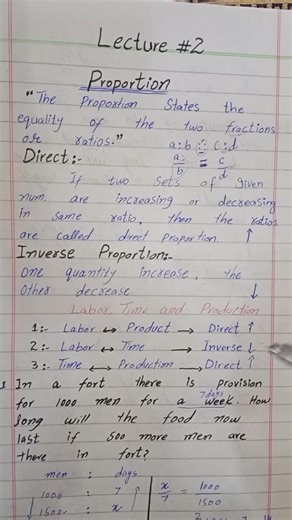 Lecture #2
Proportion
"The Proportion States the
equality of the two fractions
or ratios." a:b :: c:d
Direct:- a/b = c/d
If two sets of given
num. are increasing or decreasing
in same ratio, then the ratios
are called direct proportion. ↑
Inverse Proportion:-
One quantity increase, the
other decrease. ↓
Labor, Time and Production
1:- Labor ↔ Product → Direct ↑
2:- Labor ↔ Time → Inverse ↓
3:- Time ↔ Production → Direct ↑
In a fort there is provision
7days
for 1000 men for a week. How
long will the food now
last if 500 more men are
there in fort?
men : days x/7 = 1000/1500
1000 : 7
1500 : x